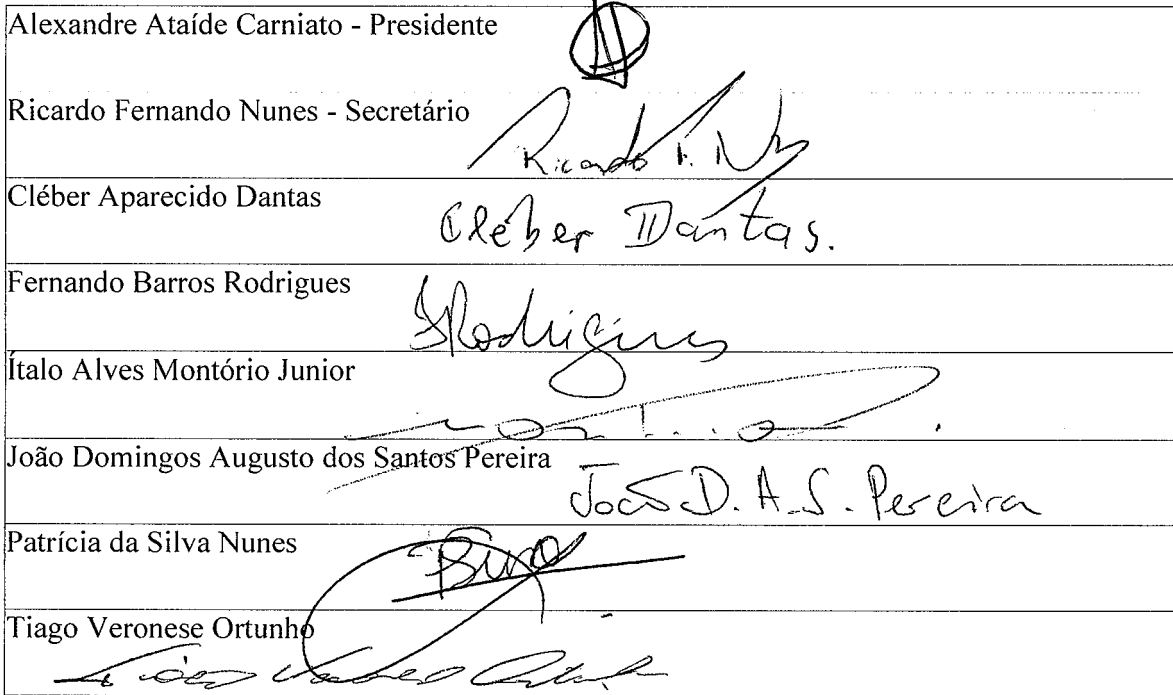 Alexandre Ataíde Carniato - Presidente
Ricardo Fernando Nunes - Secretário
Ricardo F. N
Cléber Aparecido Dantas
Cléber Dantas.
Fernando Barros Rodrigues
FRodrigues
Ítalo Alves Montório Junior
João Domingos Augusto dos Santos Pereira
João D. A. S. Pereira
Patrícia da Silva Nunes
Tiago Veronese Ortunho